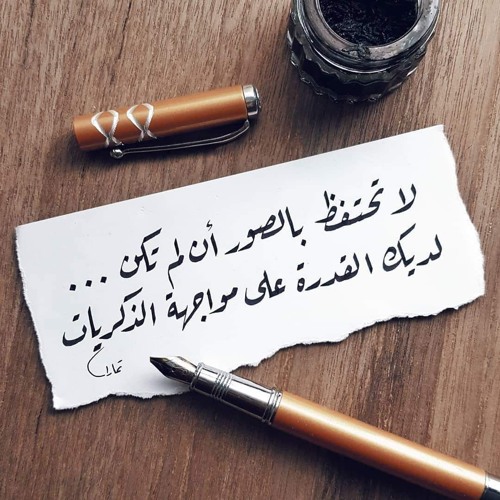 لا تحتفظ بالصور أن لم تكن ...
لديك القدرة على مواجهة الذكريات